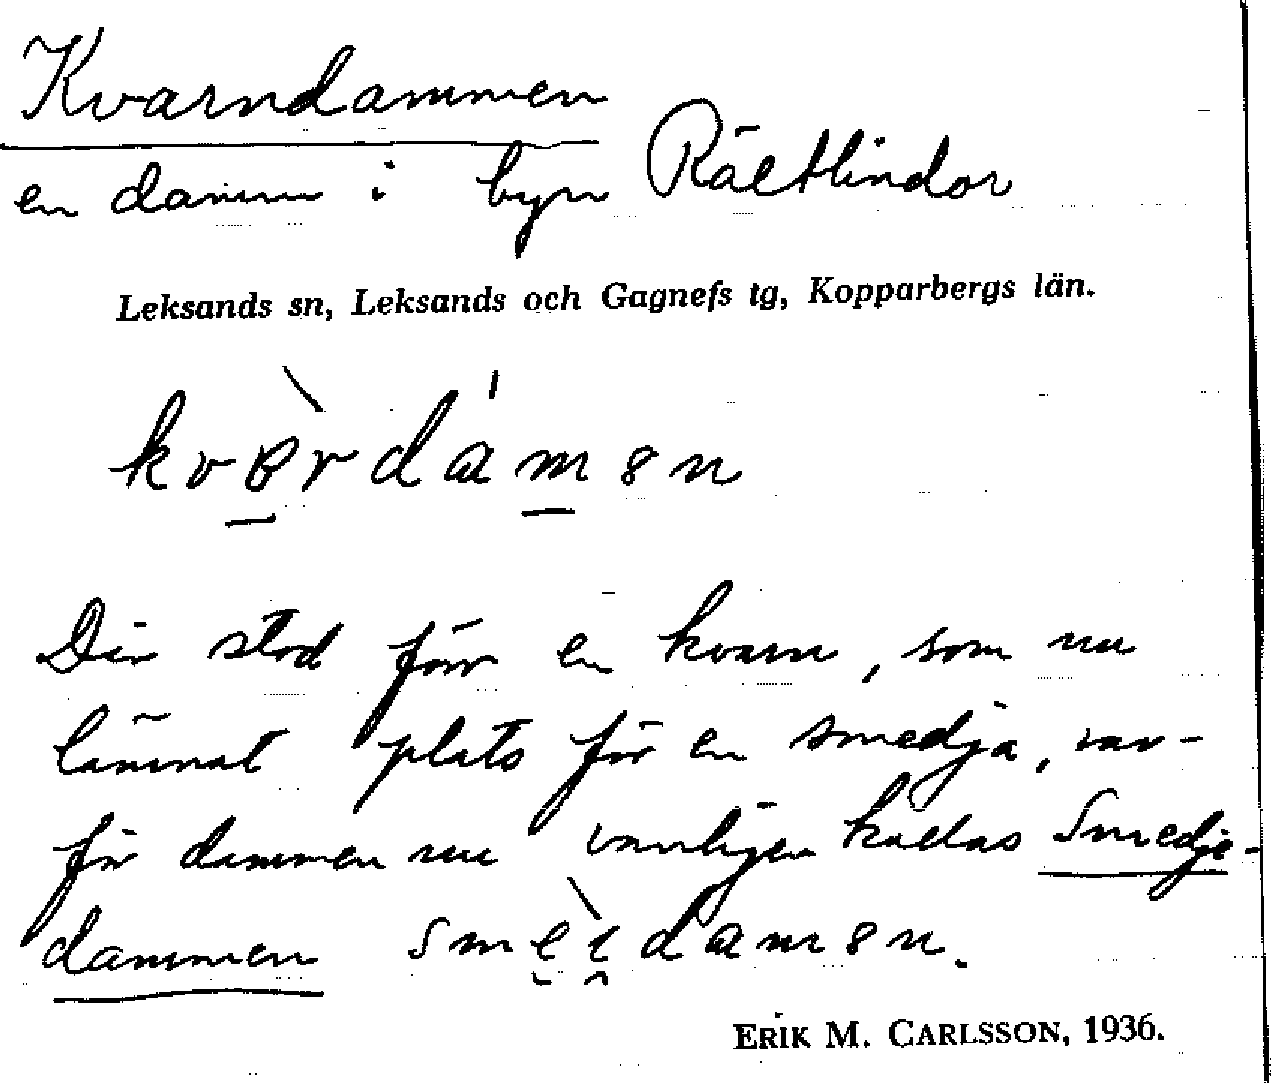 Kvarndammen
en damm i byn Rältlindor
Leksands sn, Leksands och Gagnefs tg, Kopparbergs län.
Där stod förr en kvarn, som nu
lämnat plats för en smedja, var-
för dammen nu vanligen kallas Smedje-
dammen
ERIK M. CARLSSON, 1936.